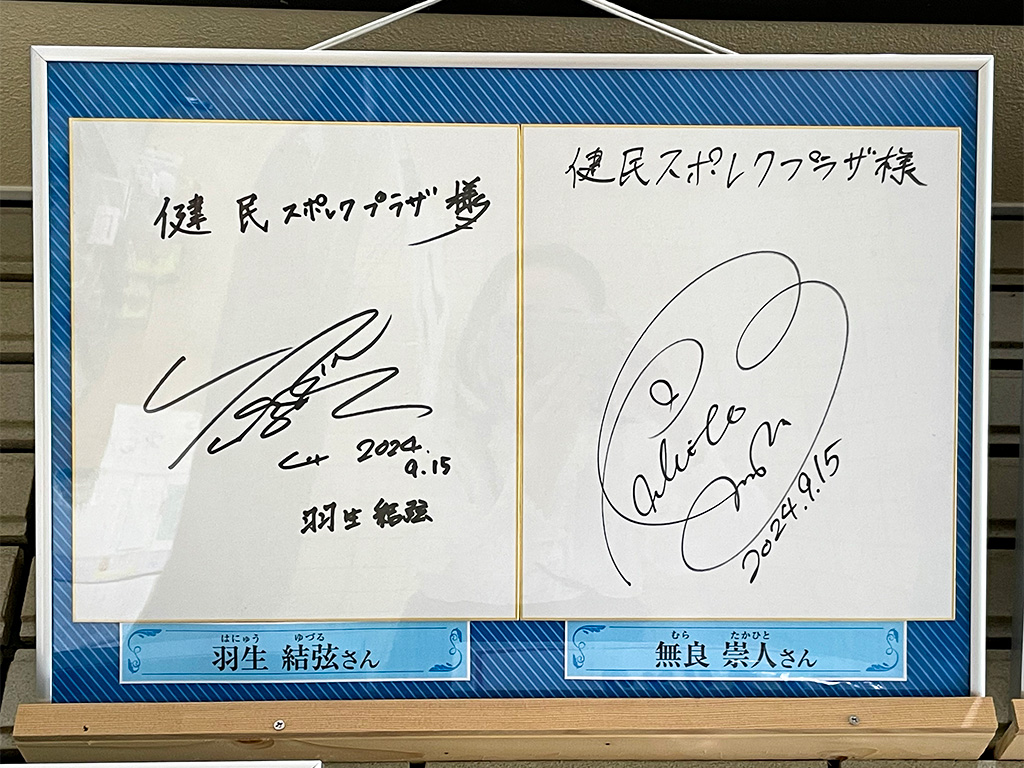 健民スポレクプラザ様
2024.
9.15
羽生結弦
健民スポレクプラザ様
2024.9.15
はにゅう ゆづる
羽生 結弦さん
むら たかひと
無良 崇人さん